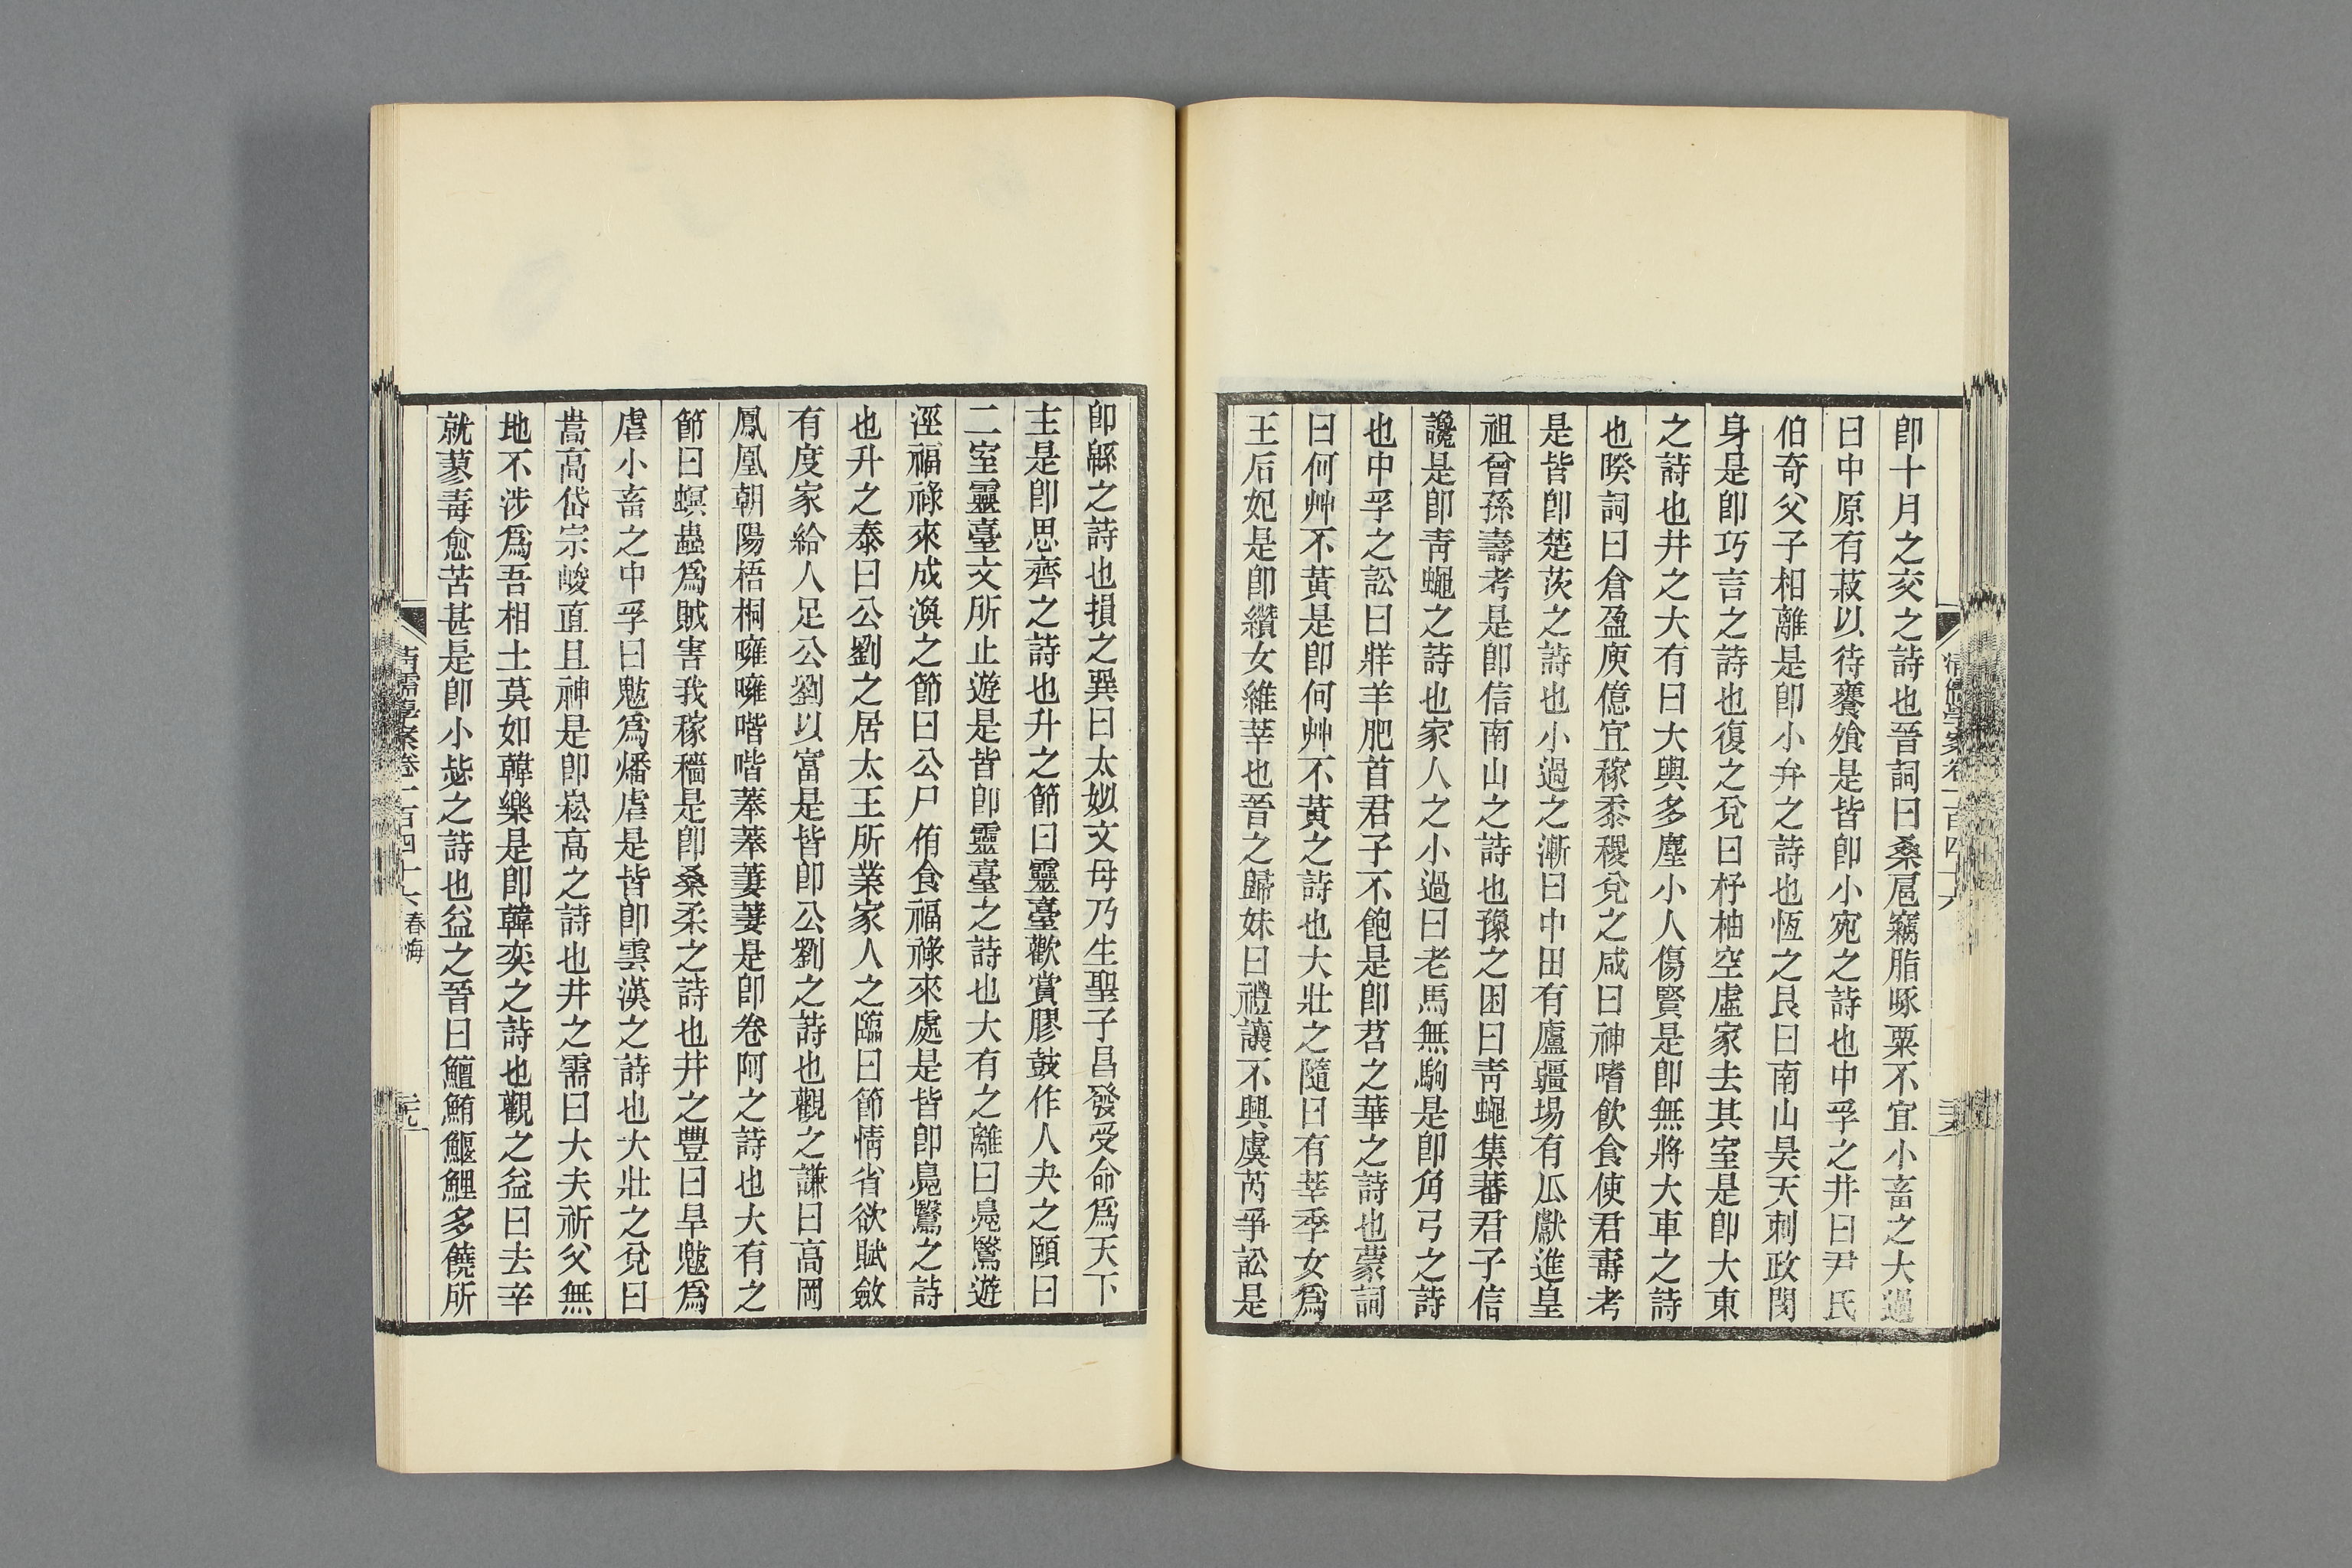 清儒學案卷一百四十六
卽十月之交之詩也晉詞曰桑扈竊脂啄粟不宜小畜之大過
曰中原有菽以待饔飧是皆卽小宛之詩也中孚之井曰尹氏
伯奇父子相離是卽小弁之詩也恆之艮曰南山昊天刺政閔
身是卽巧言之詩也復之兌曰杼柚空虛家去其室是卽大東
之詩也井之大有曰大輿多塵小人傷賢是卽無將大車之詩
也暌詞曰倉盈庾億宜稼黍稷兌之咸曰神嗜飮食使君壽考
是皆卽楚茨之詩也小過之漸曰中田有廬疆場有瓜獻進皇
祖曾孫壽考是卽信南山之詩也豫之困曰靑蠅集蕃君子信
讒是卽靑蠅之詩也家人之小過曰老馬無駒是卽角弓之詩
也中孚之訟曰牂羊肥首君子不飽是卽苕之華之詩也蒙詞
曰何艸不黃是卽何艸不黃之詩也大壯之隨曰有莘季女爲
王后妃是卽纘女維莘也晉之歸妹曰禮讓不興虞芮爭訟是
卽緜之詩也損之巽曰太姒文母乃生聖子昌發受命爲天下
主是卽思齊之詩也升之節曰靈臺歡賞膠鼓作人夬之頤曰
二室靈臺文所止遊是皆卽靈臺之詩也大有之離曰鳧鷖遊
涇福祿來成渙之節曰公尸侑食福祿來處是皆卽鳧鷖之詩
也升之泰曰公劉之居太王所業家人之臨曰節情省欲賦斂
有度家給人足公劉以富是皆卽公劉之詩也觀之謙曰高岡
鳳凰朝陽梧桐噰噰喈喈菶菶萋萋是卽卷阿之詩也大有之
節曰螟蟲爲賊害我稼穡是卽桑柔之詩也井之豐曰旱魃爲
虐小畜之中孚曰魃爲燔虐是皆卽雲漢之詩也大壯之兌曰
嵩高岱宗峻直且神是卽崧高之詩也井之需曰大夫祈父無
地不涉爲吾相土莫如韓樂是卽韓奕之詩也觀之益曰去辛
就蓼毒愈苦甚是卽小毖之詩也益之晉曰鱣鮪鰋鯉多饒所
清儒學案卷一百四十六 春海
二九